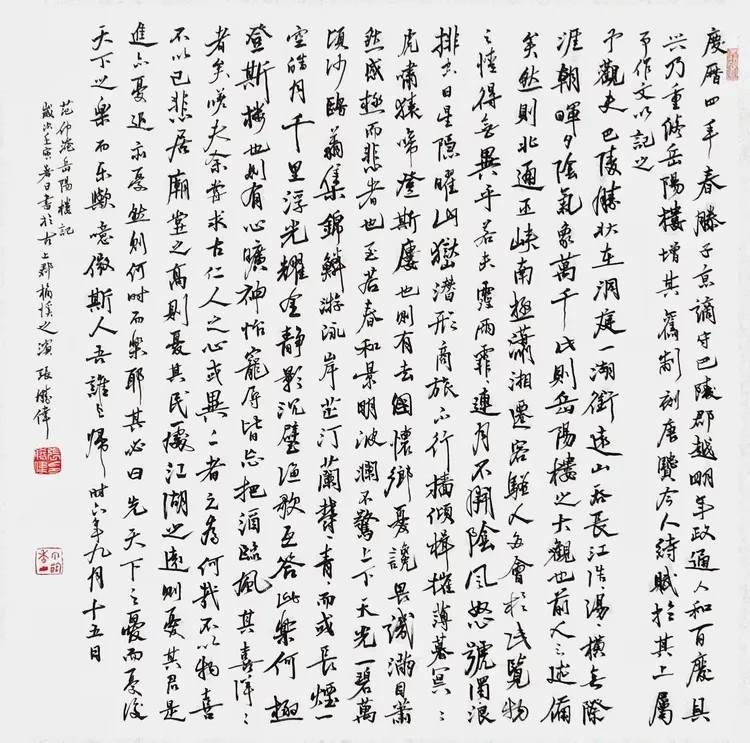 慶曆四年春滕子京謫守巴陵郡越明年政通人和百廢具
興乃重修岳陽樓增其舊制刻唐賢今人詩賦於其上屬
予作文以記之
予觀夫巴陵勝狀在洞庭一湖銜遠山吞長江浩湯橫無際
涯朝暉夕陰氣象萬千此則岳陽樓之大觀也前人之述備
矣然則北通巫峽南極瀟湘遷客騷人多會於此覽物
之情得無異乎若夫霪雨霏連月不開陰風怒號濁浪
排空日星隱曜山嶽潛形商旅不行檣傾楫摧薄暮冥〻
虎嘯猿啼登斯樓也則有去國懷鄉憂讒畏譏滿目蕭
然感極而悲者也至若春和景明波瀾不驚上下天光一碧萬
頃沙鷗翔集錦鱗游泳岸芷汀蘭鬱〻青而或長煙一
空皓月千里浮光耀金靜影沉璧漁歌互答此樂何極
登斯樓也則有心曠神怡寵辱皆忘把酒臨風其喜洋〻
者矣嗟夫余嘗求古仁人之心或異二者之為何哉不以物喜
不以己悲居廟堂之高則憂其民處江湖之遠則憂其君是
進亦憂退亦憂然則何時而樂耶其必曰先天下之憂而憂後
天下之樂而樂歟噫微斯人吾誰與歸時六年九月十五日
范仲淹岳陽樓記
歲次壬寅暑日書於古上郡榆溪之濱張勝偉